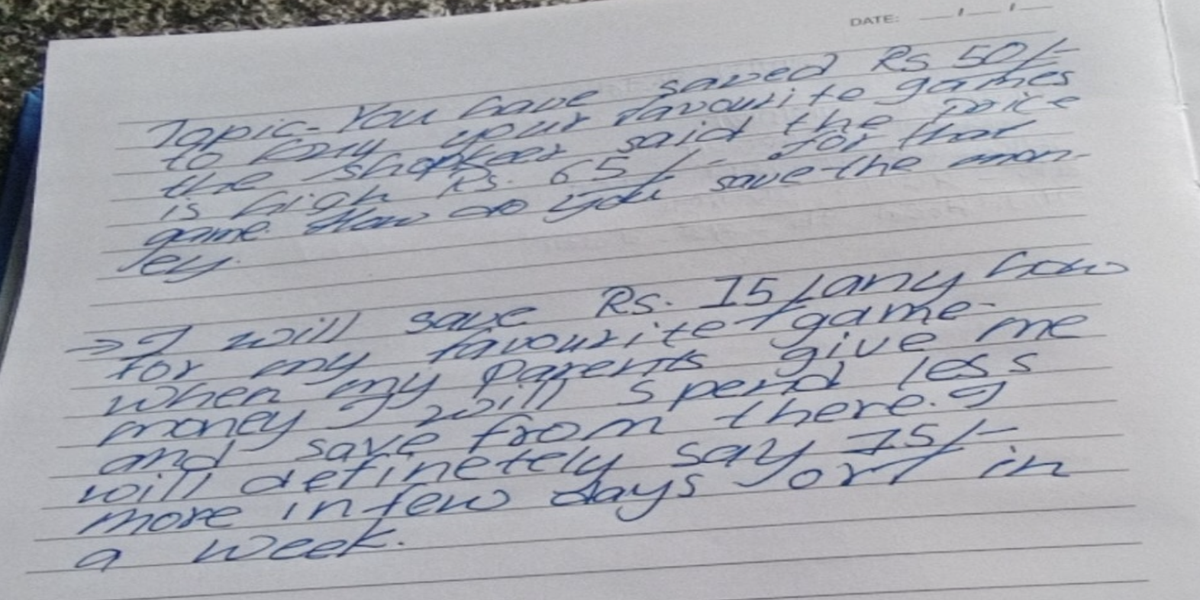 DATE: __/__/__
Topic- You have saved Rs 50/-
to buy your favourite games
the shopkeer said the price
is high Rs. 65/- for that
game. How do you save the mon-
ey.
→ I will save Rs. 15/any how
for my favourite game.
when my parents give me
money I will spend less
and save from there. I
will definetely say 15/-
more in few days or in
a week.